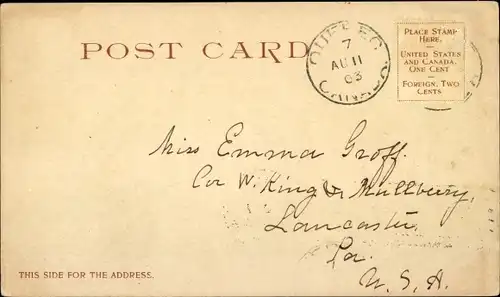 POST CARD
QUEBEC
7
AU 11
03
CANADA
PLACE STAMP
HERE.
UNITED STATES
AND CANADA,
ONE CENT
FOREIGN, TWO
CENTS
Miss Emma Groff.
Cor W. King & Mullberry,
Lancaster
Pa.
U. S. A.
THIS SIDE FOR THE ADDRESS.